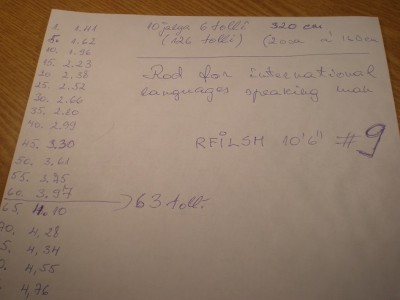 1. 1.41
5. 1.62
10. 1.96
15. 2.23
20. 2.38
25. 2.52
30. 2.66
35. 2.80
40. 2.99
45. 3.30
50. 3.61
55. 3.75
60. 3.97
65. 4.10
70. 4,28
5. 4,34
0. 4,55
4,76
10 jalga 6 tolli 320 cm
(126 tolli) (2 osa 160 cm
Rod for international
languages speaking man
RFILSM 10'6" #9
63 tolli